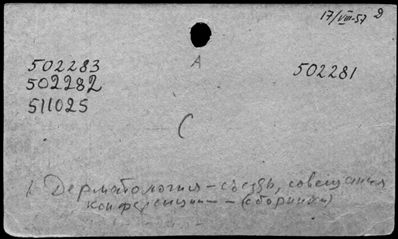 17/VIII-57 Д
А
502283
502282
511025
502281
С
1. Дерматология – съезды, совещания
конференции – (сборники)